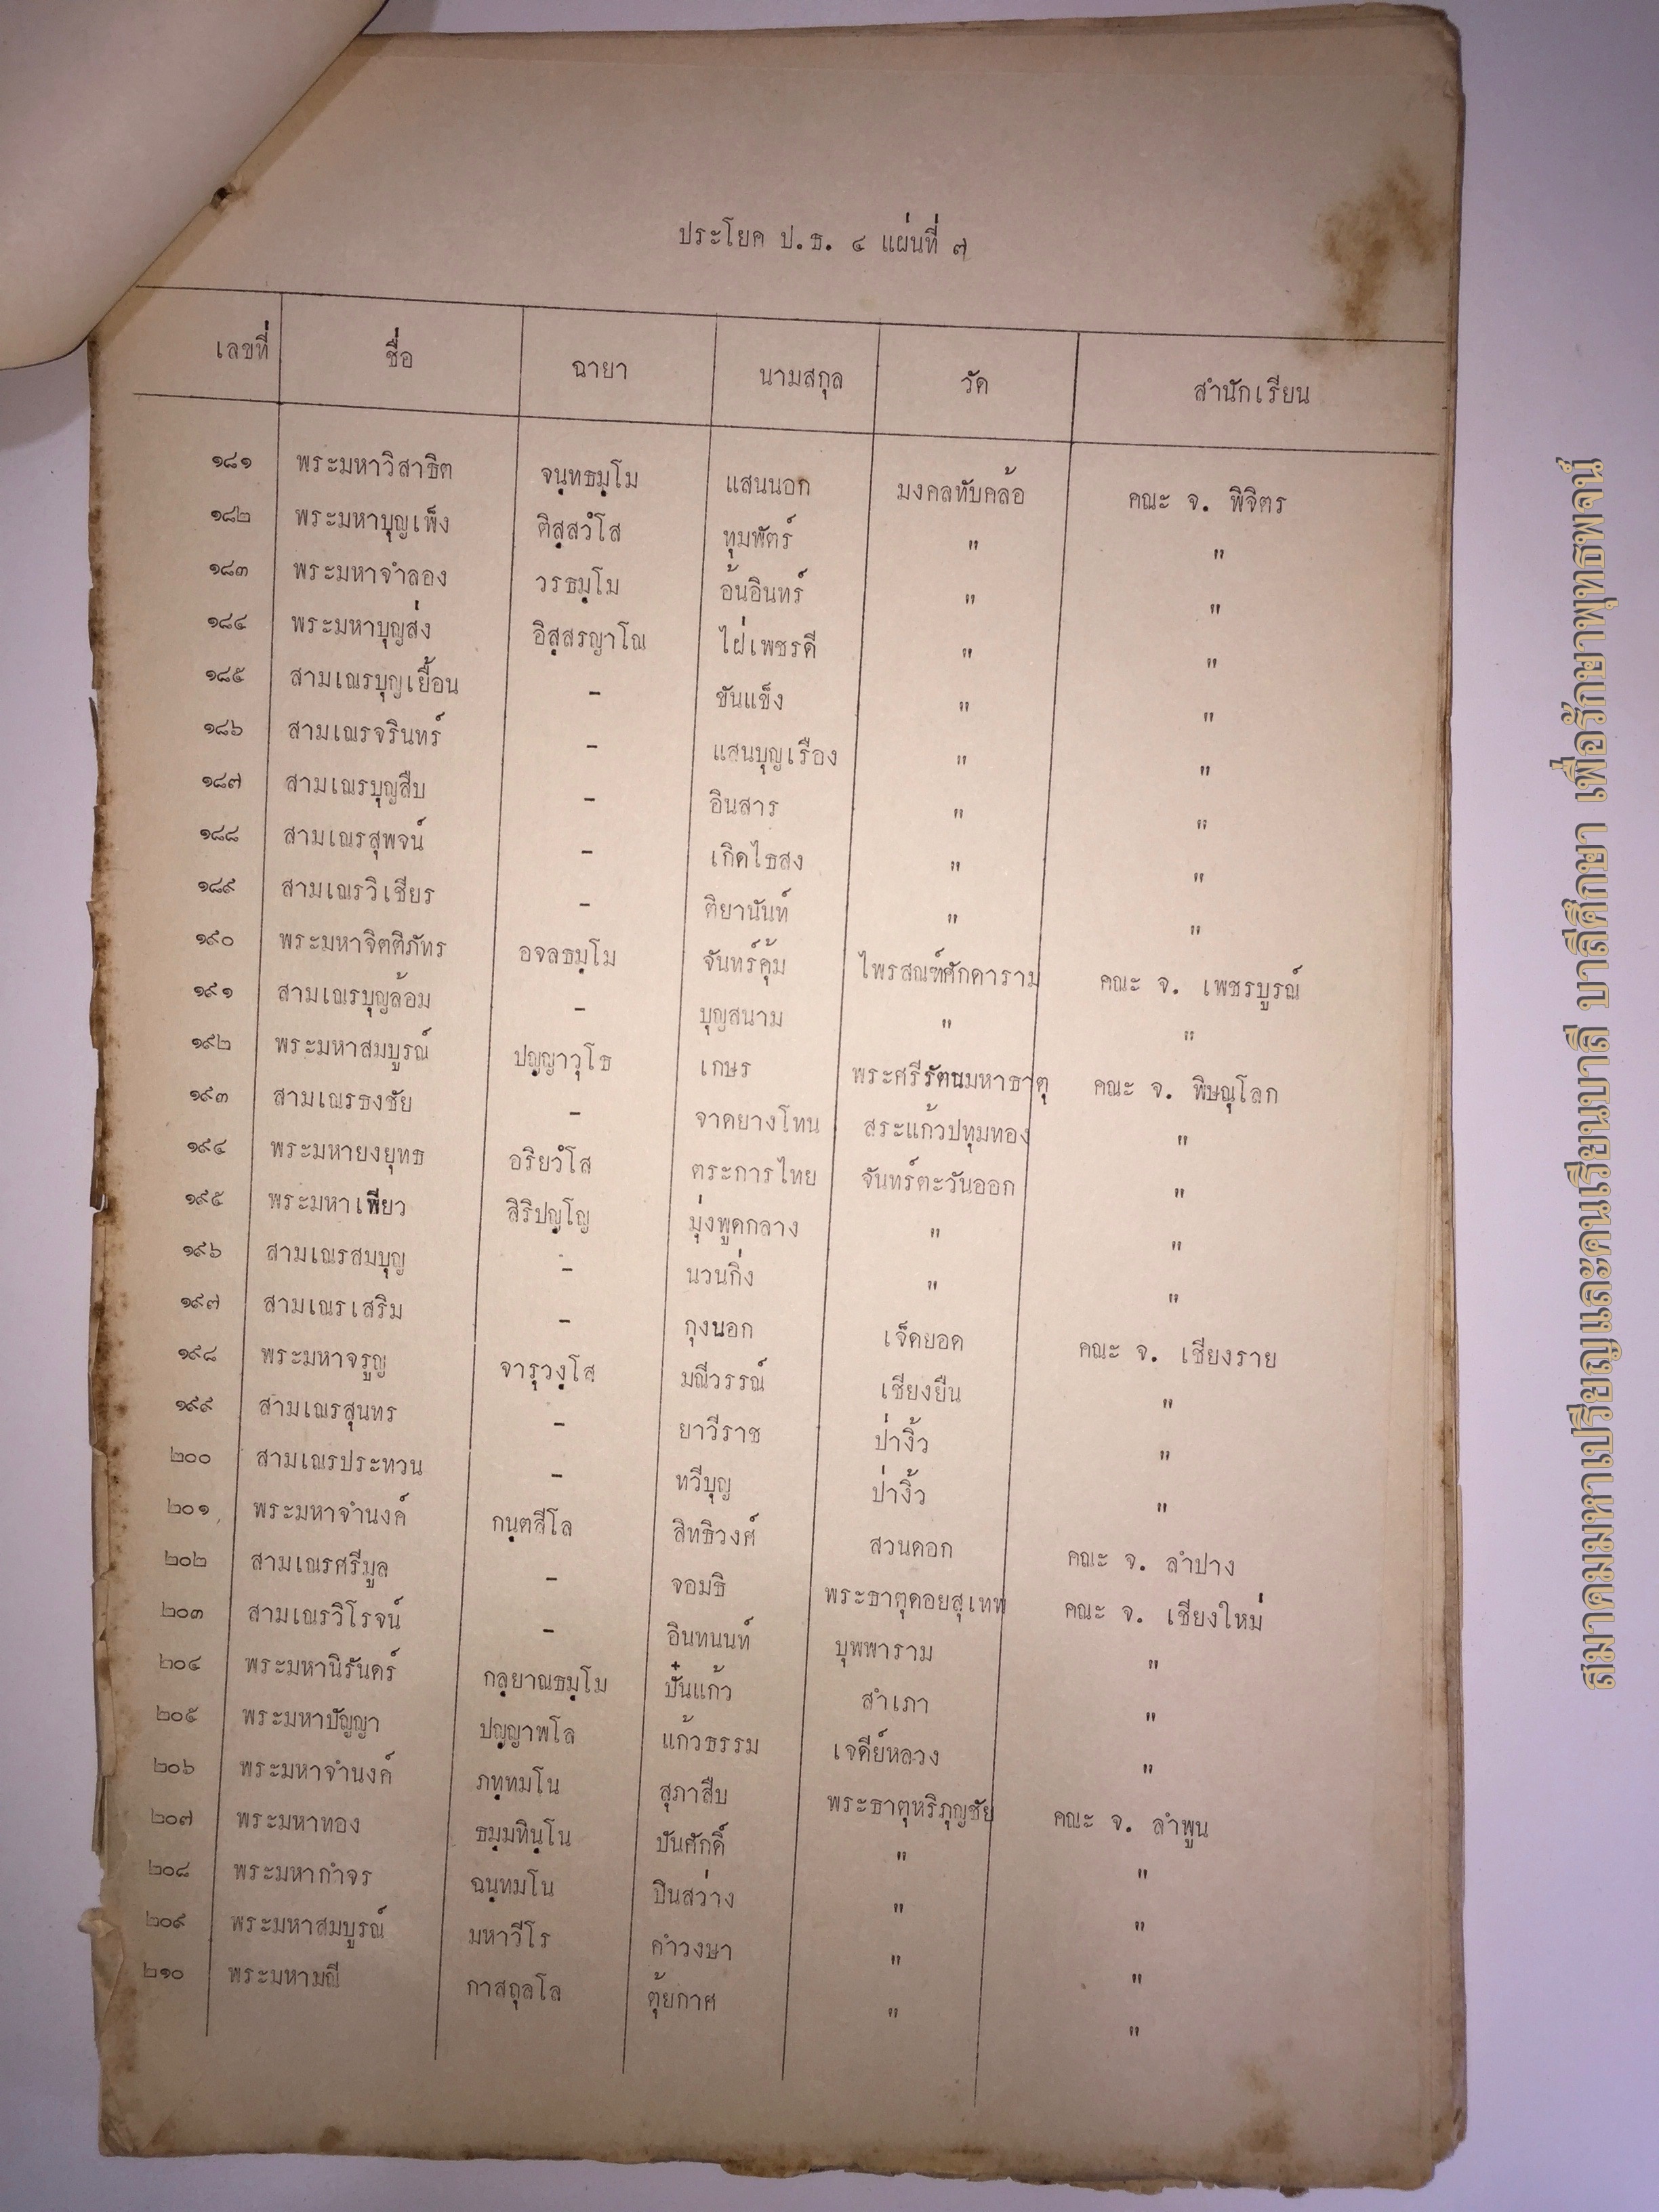 ประโยค ป.ธ. ๔ แผ่นที่ ๗
เลขที่ ชื่อ ฉายา นามสกุล วัด สำนักเรียน
๑๘๑ พระมหาวิสาธิต จนฺทธมฺโม แสนนอก มงคลทับคล้อ คณะ จ. พิจิตร
๑๘๒ พระมหาบุญเพ็ง ติสฺสวํโส ทุมพัตร์ " "
๑๘๓ พระมหาจำลอง วรธมฺโม อ้นอินทร์ " "
๑๘๔ พระมหาบุญส่ง อิสฺสรญาโณ ไฝ่เพชรดี " "
๑๘๕ สามเณรบุญเยื้อน - ขันแข็ง " "
๑๘๖ สามเณรจรินทร์ - แสนบุญเรือง " "
๑๘๗ สามเณรบุญสืบ - อินสาร " "
๑๘๘ สามเณรสุพจน์ - เกิดไธสง " "
๑๘๙ สามเณรวิเชียร - ติยานันท์ " "
๑๙๐ พระมหาจิตติภัทร อจลธมฺโม จันทร์คุ้ม ไพรสณฑ์ศักดาราม คณะ จ. เพชรบูรณ์
๑๙๑ สามเณรบุญล้อม - บุญสนาม " "
๑๙๒ พระมหาสมบูรณ์ ปญฺญาวุโธ เกษร พระศรีรัตนมหาธาตุ คณะ จ. พิษณุโลก
๑๙๓ สามเณรธงชัย - จาดยางโทน สระแก้วปทุมทอง "
๑๙๔ พระมหายงยุทธ อริยวํโส ตระการไทย จันทร์ตะวันออก "
๑๙๕ พระมหาเพียว สิริปญฺโญ มุ่งพูดกลาง " "
๑๙๖ สามเณรสมบุญ - นวนกิ่ง " "
๑๙๗ สามเณรเสริม - กุงนอก เจ็ดยอด คณะ จ. เชียงราย
๑๙๘ พระมหาจรูญ จารุวงฺโส มณีวรรณ์ เชียงยืน "
๑๙๙ สามเณรสุนทร - ยาวีราช ป่างิ้ว "
๒๐๐ สามเณรประทวน - ทวีบุญ ป่างิ้ว "
๒๐๑ พระมหาจำนงค์ กนฺตสีโล สิทธิวงศ์ สวนดอก คณะ จ. ลำปาง
๒๐๒ สามเณรศรีมูล - จอมธิ พระธาตุดอยสุเทพ คณะ จ. เชียงใหม่
๒๐๓ สามเณรวิโรจน์ - อินทนนท์ บุพพาราม "
๒๐๔ พระมหานิรันดร์ กลฺยาณธมฺโม ปั๋นแก้ว สำเภา "
๒๐๕ พระมหาปัญญา ปญฺญาพโล แก้วธรรม เจดีย์หลวง "
๒๐๖ พระมหาจำนงค์ ภทฺทมโน สุภาสืบ พระธาตุหริภุญชัย คณะ จ. ลำพูน
๒๐๗ พระมหาทอง ธมฺมทินฺโน ปันศักดิ์ " "
๒๐๘ พระมหากำจร ฉนฺทมโน ปินสว่าง " "
๒๐๙ พระมหาสมบูรณ์ มหาวีโร คำวงษา " "
๒๑๐ พระมหามณี กาสถุลโล ตุ้ยกาศ " "
สมาคมมหาเปรียญและคนเรียนบาลี บาลีศึกษา เพื่อรักษาพุทธพจน์